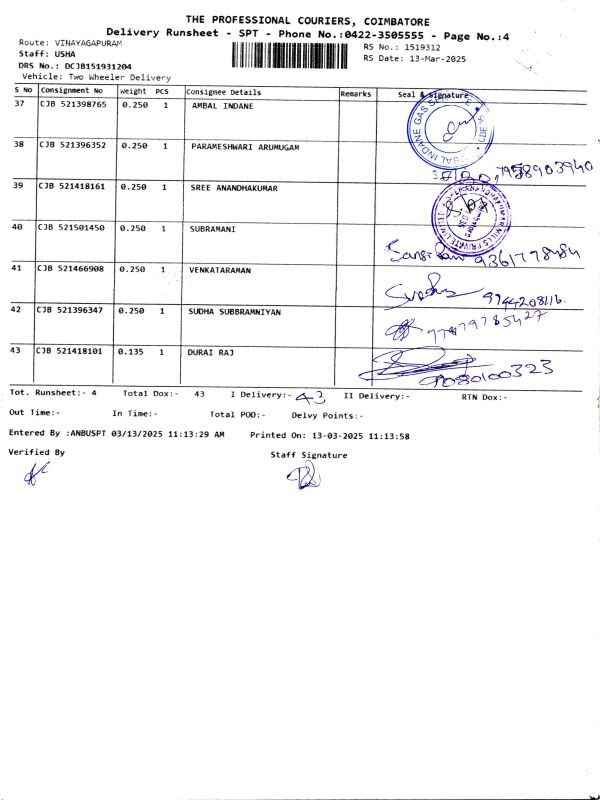 THE PROFESSIONAL COURIERS, COIMBATORE
Delivery Runsheet - SPT - Phone No.:0422-3505555 - Page No.:4
Route: VINAYAGAPURAM
RS No.: 1519312
Staff: USHA
RS Date: 13-Mar-2025
DRS No.: DCJB151931204
Vehicle: Two Wheeler Delivery
S No Consignment No Weight PCS Consignee Details Remarks Seal & Signature
37 CJB 521398765 0.250 1 AMBAL INDANE
38 CJB 521396352 0.250 1 PARAMESHWARI ARUMUGAM
39 CJB 521418161 0.250 1 SREE ANANDHAKUMAR
40 CJB 521501450 0.250 1 SUBRAMANI
41 CJB 521466908 0.250 1 VENKATARAMAN
9744208116.
42 CJB 521396347 0.250 1 SUDHA SUBBRAMNIYAN
43 CJB 521418101 0.135 1 DURAI RAJ
Tot. Runsheet:- 4 Total Dox:- 43 I Delivery:- 43 II Delivery:- RTN Dox:-
Out Time:- In Time:- Total POD:- Delvy Points:-
Entered By :ANBUSPT 03/13/2025 11:13:29 AM Printed On: 13-03-2025 11:13:58
Verified By Staff Signature